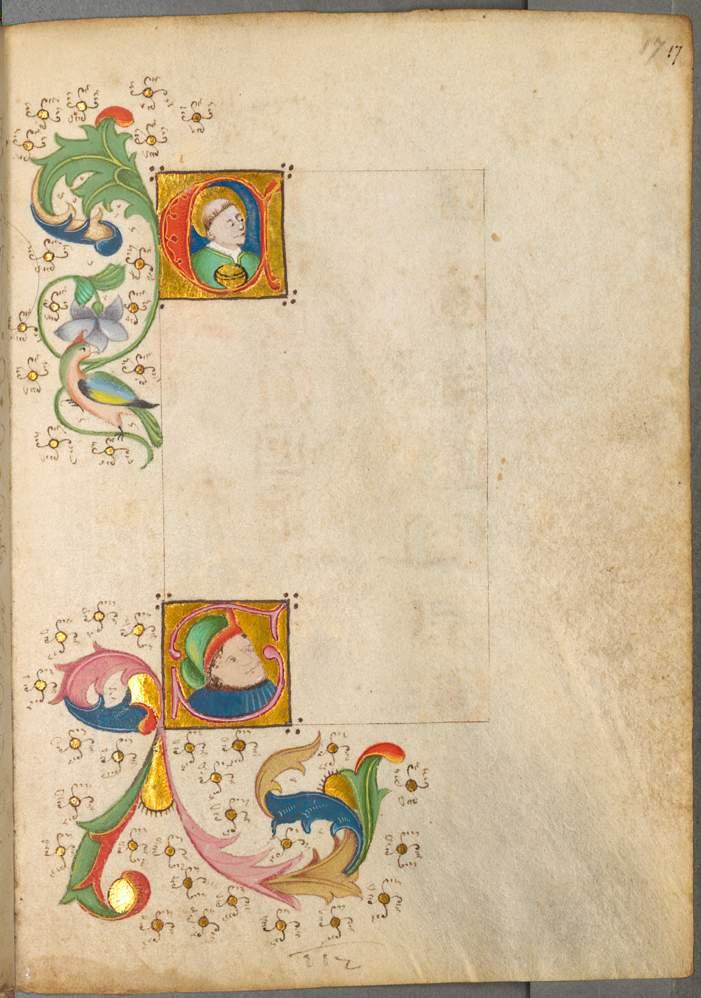 17 17
A
S